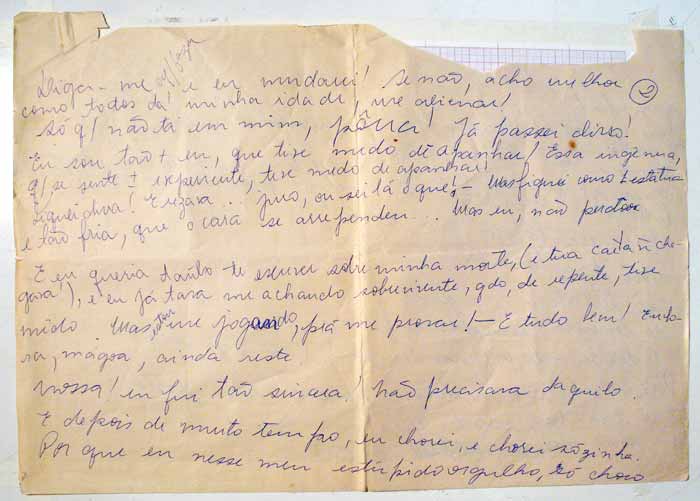 Diga-me e eu mudarei! Senão, acho melhor
como todos da minha idade, me alienar! 2
Só q/ não tá em mim, pôrra! Já passei disso!
Eu sou tão + eu, que tive medo de apanhar! Essa ingênua,
q/ se sente ± experiente, teve medo de apanhar!
Fiquei dura! E rezava... juro, ou sei lá o quê! - Mas fiquei como 1 estátua
e tão fria, que o cara se arrependeu... Mas eu, não perdoo
E eu queria tanto te escrever sobre minha morte, (e tua carta ñ che-
gava), e eu já tava me achando sobrevivente, qdo, de repente, tive
mêdo. Mas estou me jogando, prá me provar! - E tudo bem! Embo-
ra, mágoa, ainda reste.
Nossa! eu fui tão sincera! Não precisava daquilo.
E depois de muito tempo, eu chorei, e chorei sòzinha.
Por que eu nesse meu estúpido orgulho, só choro